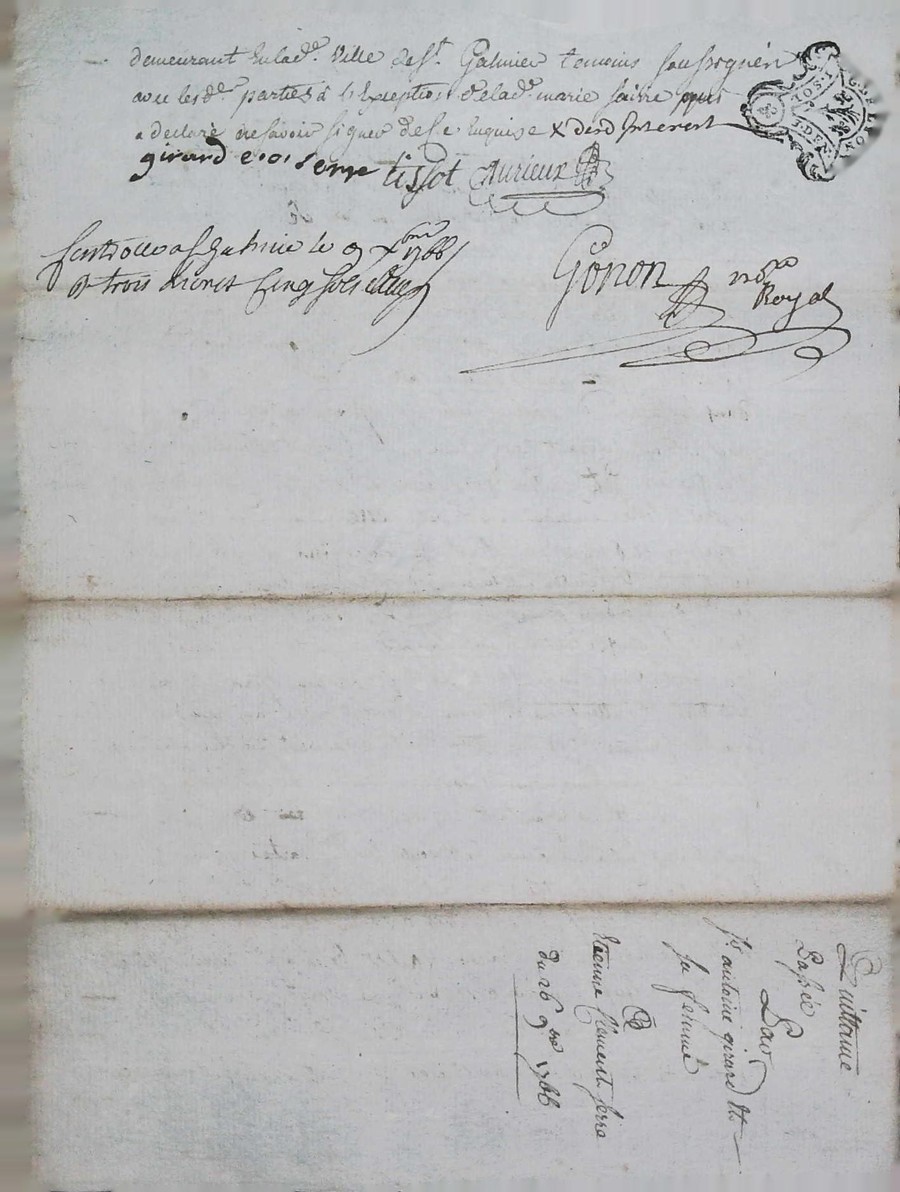 demeurant en lad.e Ville de St. Galmier temoins soussignés
avec les d.e parties à l'Exception de lad.e marie faivre qui
a declaré ne savoir signer de ce Enquise x desd Interest
girard
Serre tissot Aurieux
le 9 xbre 1766
trois livres cinq sols
Gonon no.re
Royal
Quittance
Passée
Par
Sr antoine girard et
sa femme
a
Etienne Clement serre
du 26 9bre 1766